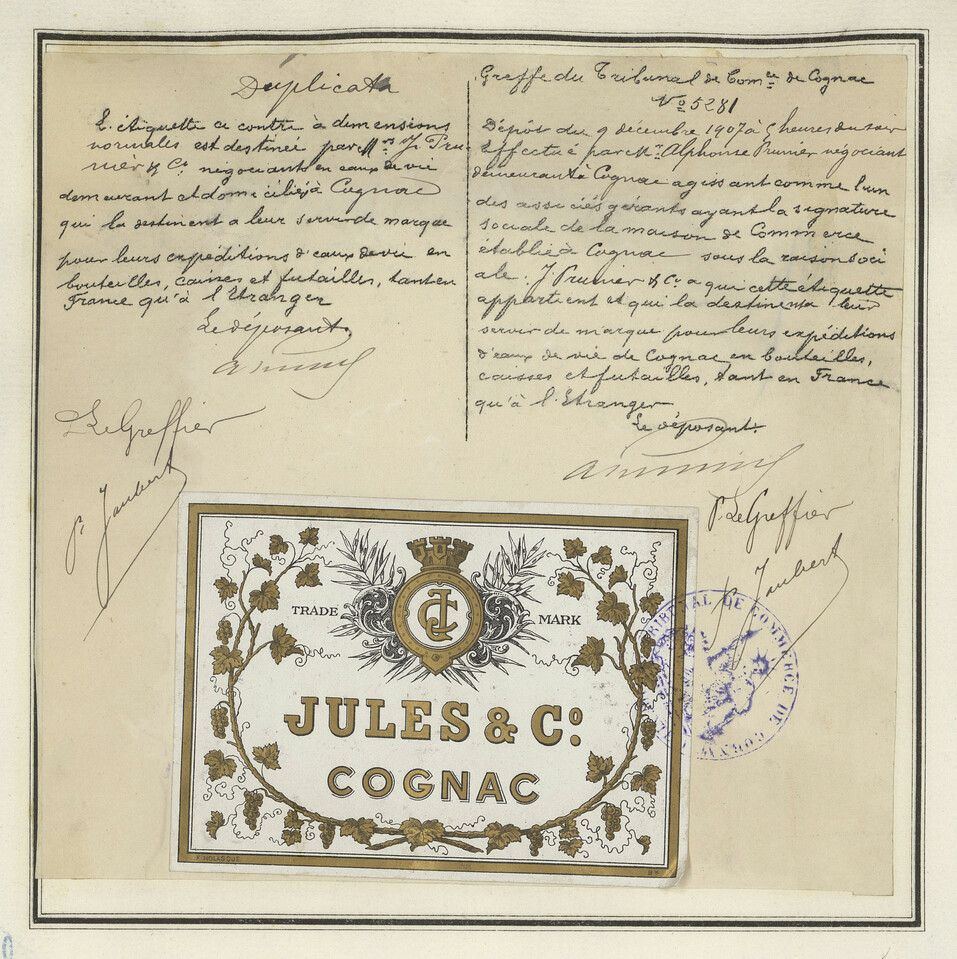 Duplicata
L'étiquette ci contre à dimensions
normales est destinée par Mrs J. Pru-
nier & Co négociants en eaux de vie
demeurant et domiciliés à Cognac
qui la destinent a leur servir de marque
pour leurs expéditions d'eaux de vie en
bouteilles, caisses et futailles, tant en
France qu'à l'Etranger
Le déposant
P. Le Greffier
P. Jaubert
Greffe du Tribunal de Comce de Cognac
No 5281
Dépôt du 9 décembre 1907 à 5 heures du soir
Effectué par Mr Alphonse Prunier négociant
demeurant à Cognac agissant comme l'un
des associés gérants ayant la signature
sociale de la maison de Commerce
établie à Cognac sous la raison soci
ale. J Prunier & Co a qui cette étiquette
appartient et qui la destinent a leur
servir de marque pour leurs expéditions
d'eaux de vie de Cognac en bouteilles,
caisses et futailles, tant en France
qu'à l'Etranger
Le déposant
P. Le Greffier
P. Jaubert
TRADE MARK
JC
JULES & Co.
COGNAC
TRIBUNAL DE COMMERCE DE COGNAC